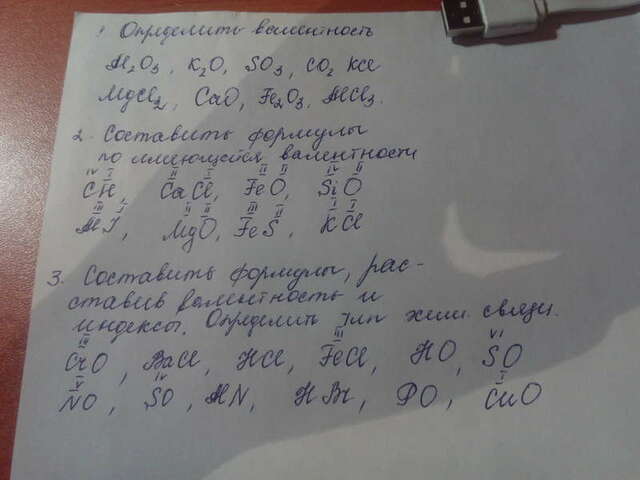 1 Определить валентность
Al₂O₃, K₂O, SO₃, CO₂ KCl
MgCl₂, CaO, Fe₂O₃, AlCl₃.
2. Составить формулы
по имеющейся валентности
IV I II I II II IV II
CH, CaCl, FeO, SiO
III I II II III II I I
AlI, MgO, FeS, KCl
3. Составить формулы, рас-
ставив валентность и
индексы. Определить тип хим. связи.
III III VI
CrO, BaCl, HCl, FeCl, HO, SO
V IV I
NO, SO, AlN, HBr, PO, CuO